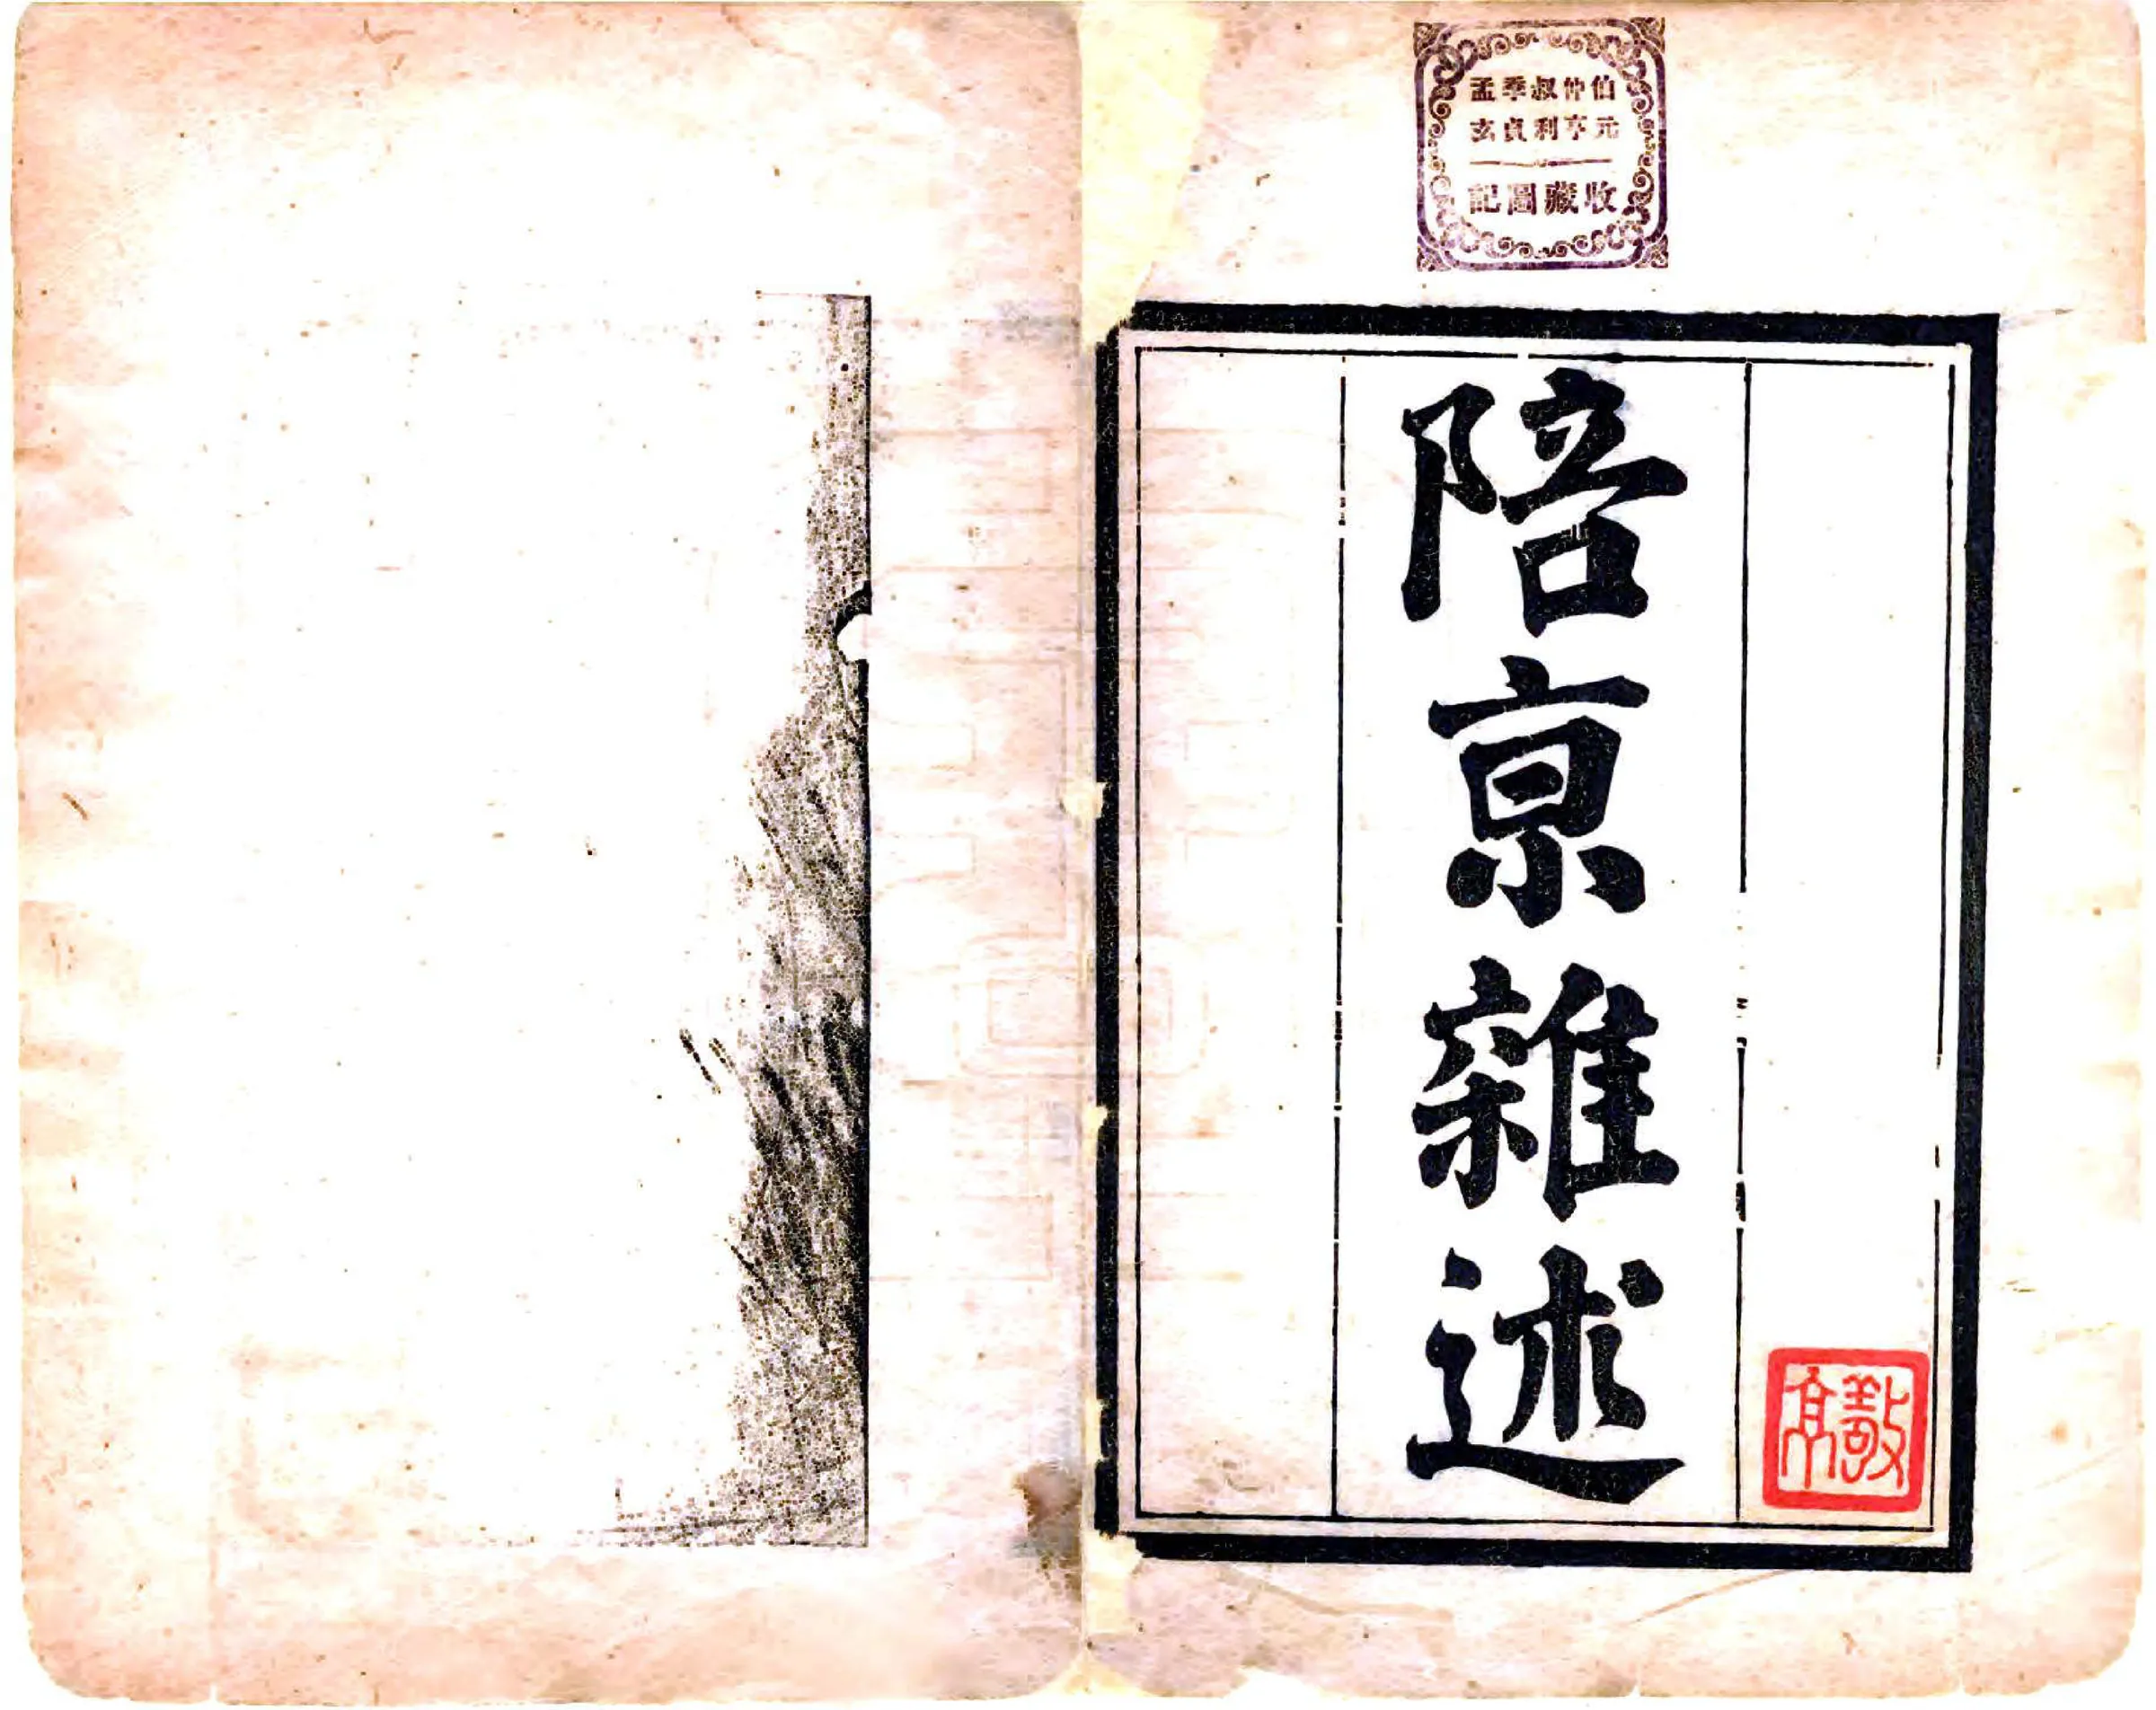 伯仲叔季孟
元亨利貞玄
收藏圖記
陪京雜述